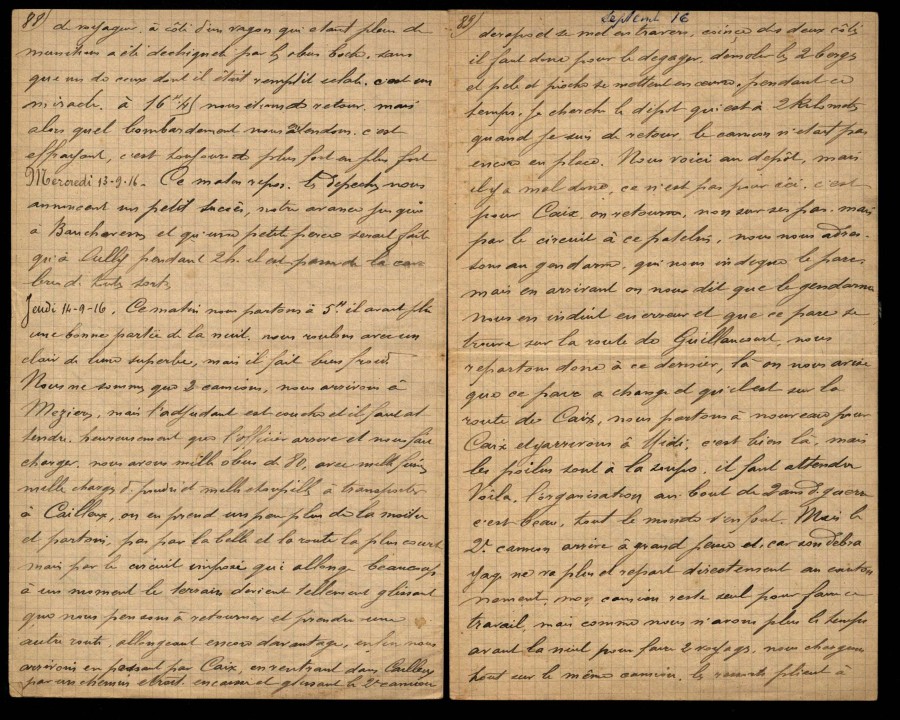 88/
de voyager, à côté d'un vagon qui etant plein de
munitions a été dechiqueté par les obus boche, sans
que un de ceux dont il était remplit eclate. c'est un
miracle. à 16H 1/4 nous étions de retour, mais
alors quel bombardement nous entendons. c'est
effrayant, c'est toujours de plus fort en plus fort
Mercredi 13-9-16. Ce matin repos. les depeches nous
annoncent un petit succès, notre avance jusqu'à
à Bouchavesnes et qu'une petite percé serait faite
qu'à pendant 2h il est
de toute sorte
Jeudi 14-9-16. Ce matin nous partons à 5H. il avait plu
une bonne partie de la nuit. nous roulons avec un
clair de lune superbe, mais il fait bien froid
Nous ne sommes que 2 camions, nous arrivons à
Mezieres, mais l'adjudant est couché et il faut at
tendre. heureusement que l'officier arrive et nous fait
charger. nous avons mille obus de 80, avec mille fusées
mille charges de poudre et mille etoupilles à transporter
à Cailleux, on en prend un peu plus de la moitié
et partons, pas par la belle et la route la plus courte
mais par le circuit imposé qui allonge beaucoup
à un moment le terrain devient tellement glissant
que nous pensons à retourner et prendre une
autre route, allongeant encore davantage, enfin nous
arrivons en passant par Caix, en rentrant dans Cailleux
par un chemin etroit. encaissé et glissant le 2e camion
89/
Septembre 16
derape et se met en travers, coincé des deux côtés
il faut donc pour le degager, demolir les 2 berges
et pelle et pioche se mettent en oeuvre. pendant ce
temps. Je cherche le dépôt qui est à 2 Kilometres
quand je suis de retour le camion n'etait pas
encore en place. Nous voici au depôt, mais
il y a mal donne, ce n'est pas pour ici. c'est
pour Caix. on retourne, non sur ses pas. mais
par le circuit à ce patelin, nous nous adres-
sons au gendarme. qui nous indique le parc,
mais en arrivant on nous dit que le gendarme
nous en induit en erreur et que ce parc se
trouve sur la route de Guillaucourt, nous
repartons donc à ce dernier, là on nous avise
que ce parc a changé et qu'il est sur la
route de Caix, nous partons à nouveau pour
Caix et y arrivons à Midi. c'est bien là, mais
les poilus sont à la soupe, il faut attendre
Voila, l'organisation au bout de 2 ans de guerre
c'est beau, tout le monde s'en fout. Mais le
2e camion arrive à grand peine et, car son debra
yage ne va plus et repart directement au canton
nement, mon camion reste seul pour faire ce
travail, mais comme nous n'avons plus le temps
avant la nuit pour faire 2 voyages, nous chargeons
tout sur le même camion, les ressorts plient à